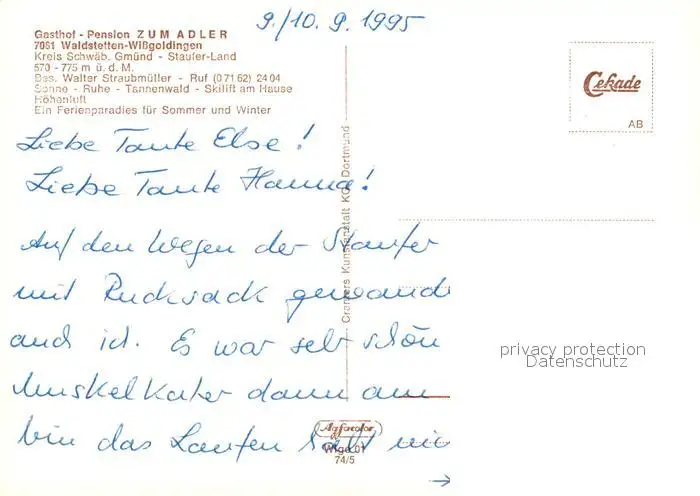 9./10. 9. 1995
Gasthof - Pension ZUM ADLER
7051 Waldstetten-Wißgoldingen
Kreis Schwäb. Gmünd - Staufer-Land
570 - 775 m ü. d. M.
Bes. Walter Straubmüller - Ruf (0 71 62) 24 04
Sonne - Ruhe - Tannenwald - Skilift am Hause
Höhenluft
Ein Ferienparadies für Sommer und Winter
Cekade
AB
Liebe Tante Else!
Liebe Tante Hanna!
Auf den Wegen der Staufer
mit Rucksack gewand
auch ich. Es war sehr schön
Muskelkater dann am
bin das Laufen mi
→
Kunstanstalt KG Dortmund
Agfacolor
Wigo 01
74/5
privacy protection
Datenschutz